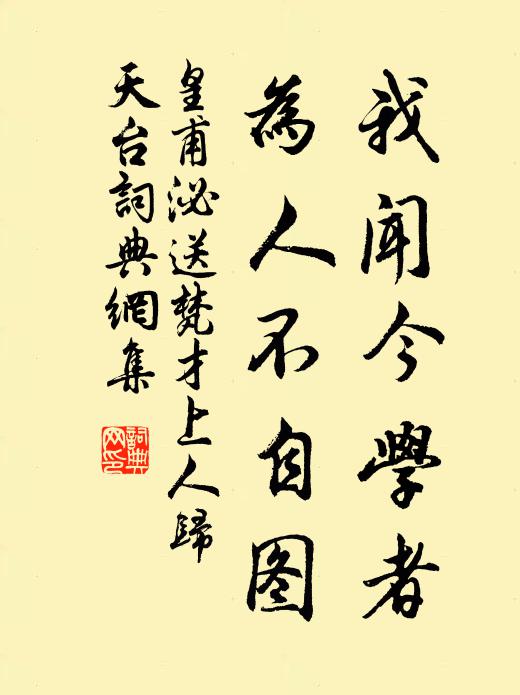 我闻今學者
為人不自图
皇甫泌送梵才上人歸
天台詞典網集
詞典网印